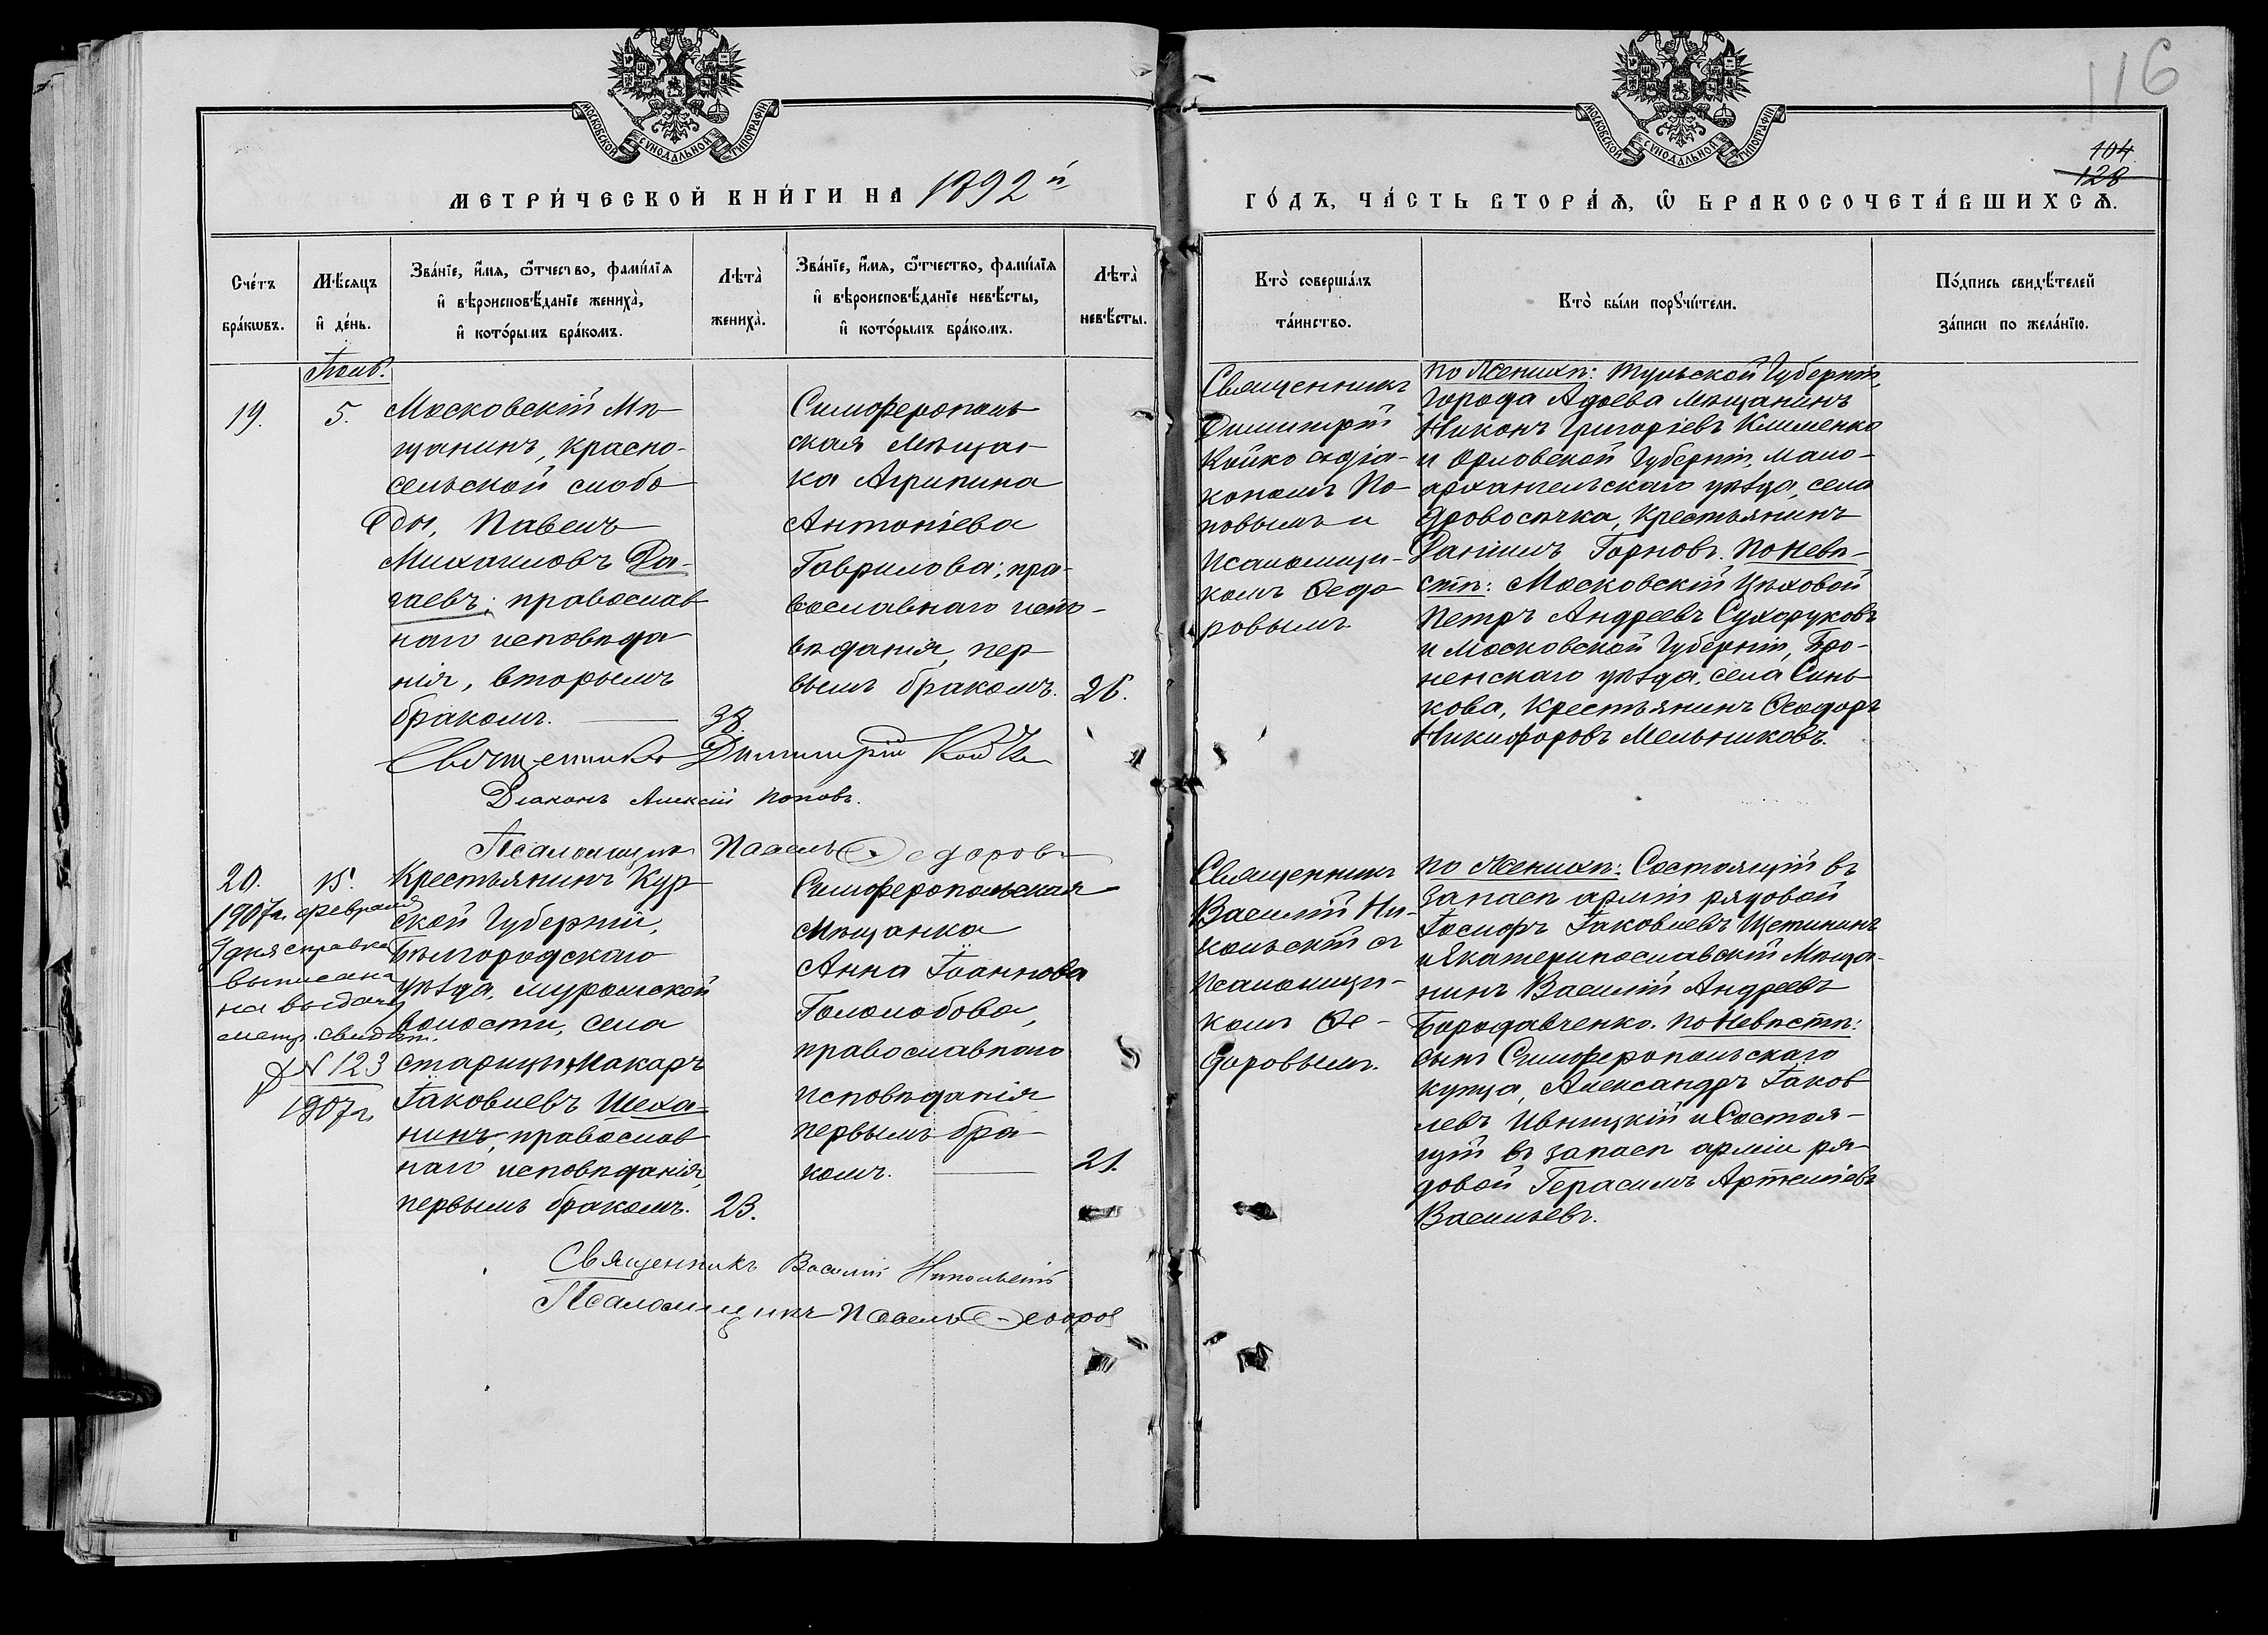 116
104
128
МОСКОВСКОЙ СѴНОДАЛЬНОЙ ТИПОГРАФІИ
МОСКОВСКОЙ СѴНОДАЛЬНОЙ ТИПОГРАФІИ
МЕТРИ́ЧЕСКОЙ КНИ́ГИ НА 1892 й
ГО́ДЪ, ЧА́СТЬ ВТОРА́Ѧ, Ѽ БРАКОСОЧЕТА́ВШИХСѦ.
Сче́тъ бра́кѡвъ.
Мѣ́сяцъ и҆ де́нь.
Зва́нїе, и҆́мѧ, ѻ҆́тчество, фамы́лїѧ
и҆ вѣроисповѣ́данїе жениха̀,
и҆ кото́рымъ бра́комъ.
Лѣта̀ жениха̀.
Зва́нїе, и҆́мѧ, ѻ҆́тчество, фами́лїѧ
и҆ вѣроисповѣ́данїе невѣ́сты,
и҆ кото́рымъ бра́комъ.
Лѣта̀ невѣ́сты.
Кто̀ соверша́лъ та́инство.
Кто̀ бы́ли порꙋчи́тели.
По́дпись свидѣ́телей за́писи по жела́нїю.
19.
5.
Московскій Мѣ-
щанинъ, красно-
сельской слобо
ды, Павелъ
Михаиловъ Да-
гаевъ; православ
наго исповѣда
нія, вторымъ
бракомъ.
38.
Симферополь
ская Мѣщан
ка Агрипина
Антоніева
Гаврилова; пра-
вославнаго испо-
вѣданія, пер
вымъ бракомъ.
Священникъ
Димитрій
Койко съ діа-
кономъ По-
повымъ и
Псаломщи-
комъ Ѳедо
ровымъ.
По Женихѣ: Тульской Губерніи,
Города Адоева мѣщанинъ
Никонъ Григоріевъ Клименко
и Орловской Губерніи, Мало-
архангельскаго уѣзда, села
Дровосѣчка, Крестьянинъ
Даніилъ Горновъ. По Невѣ-
стѣ: Московскій Цѣховой
Петръ Андреевъ Сухоруковъ
и Московской Губерніи, Бро-
ненскаго уѣзда, села Синь
кова, Крестьянинъ Ѳеодоръ
Никифоровъ Мельниковъ.
Священникъ Димитрій Койко
Діаконъ Алексій Поповъ.
Псаломщикъ Павелъ Ѳедоровъ
20.
15.
1907 г. февраля
9 дня справка
выписана
на выдачу
метр. свидѣт.
№ 123
1907 г.
Крестьянинъ Кур
ской Губерніи,
Бѣлгородскаго
уѣзда, Муромской
волости, села
Старицы, Макаръ
Іаковлевъ Шеха-
нинъ, православ
наго исповѣданія,
первымъ бракомъ.
23.
Симферопольская
Мѣщанка
Анна Іоаннова
Голомобова,
православнаго
исповѣданія
первымъ бра-
комъ.
21.
Священникъ
Василій Ни-
кольскій съ
Псаломщи-
комъ Ѳе-
доровымъ.
По Женихѣ: Состоящій въ
запасѣ арміи рядовой
Іосифъ Іаковлевъ Щетининъ
и Екатеринославскій Мѣща-
нинъ Василій Андреевъ
Бородавченко. По Невѣстѣ:
сынъ Симферопольскаго
купца, Александръ Іаков
левъ Ивницкій и Состоя-
щій въ запасѣ арміи ря-
довой Герасимъ Артеміевъ
Васильевъ.
Священникъ Василій Никольскій
Псаломщикъ Павелъ Ѳедоров